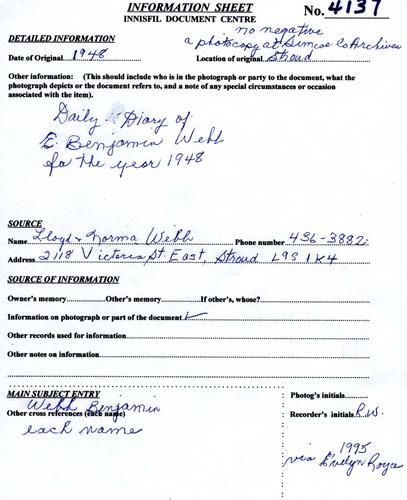 INFORMATION SHEET
INNISFIL DOCUMENT CENTRE
No. 4137
no negative
a photocopy at Simcoe Co Archives
DETAILED INFORMATION
Date of Original 1948
Location of original Stroud
Other information: (This should include who is in the photograph or party to the document, what the
photograph depicts or the document refers to, and a note of any special circumstances or occasion
associated with the item).
Daily Diary of
E. Benjamin Webb
for the year 1948
SOURCE
Name Lloyd & Norma Webb Phone number 436-3882
Address 2118 Victoria St. East, Stroud L9S 1K4
SOURCE OF INFORMATION
Owner's memory Other's memory If other's, whose?
Information on photograph or part of the document ✓
Other records used for information
Other notes on information
MAIN SUBJECT ENTRY
Webb Benjamin
Other cross references (each name)
each name
Photog's initials
Recorder's initials R.W.
1995
via Evelyn Royce